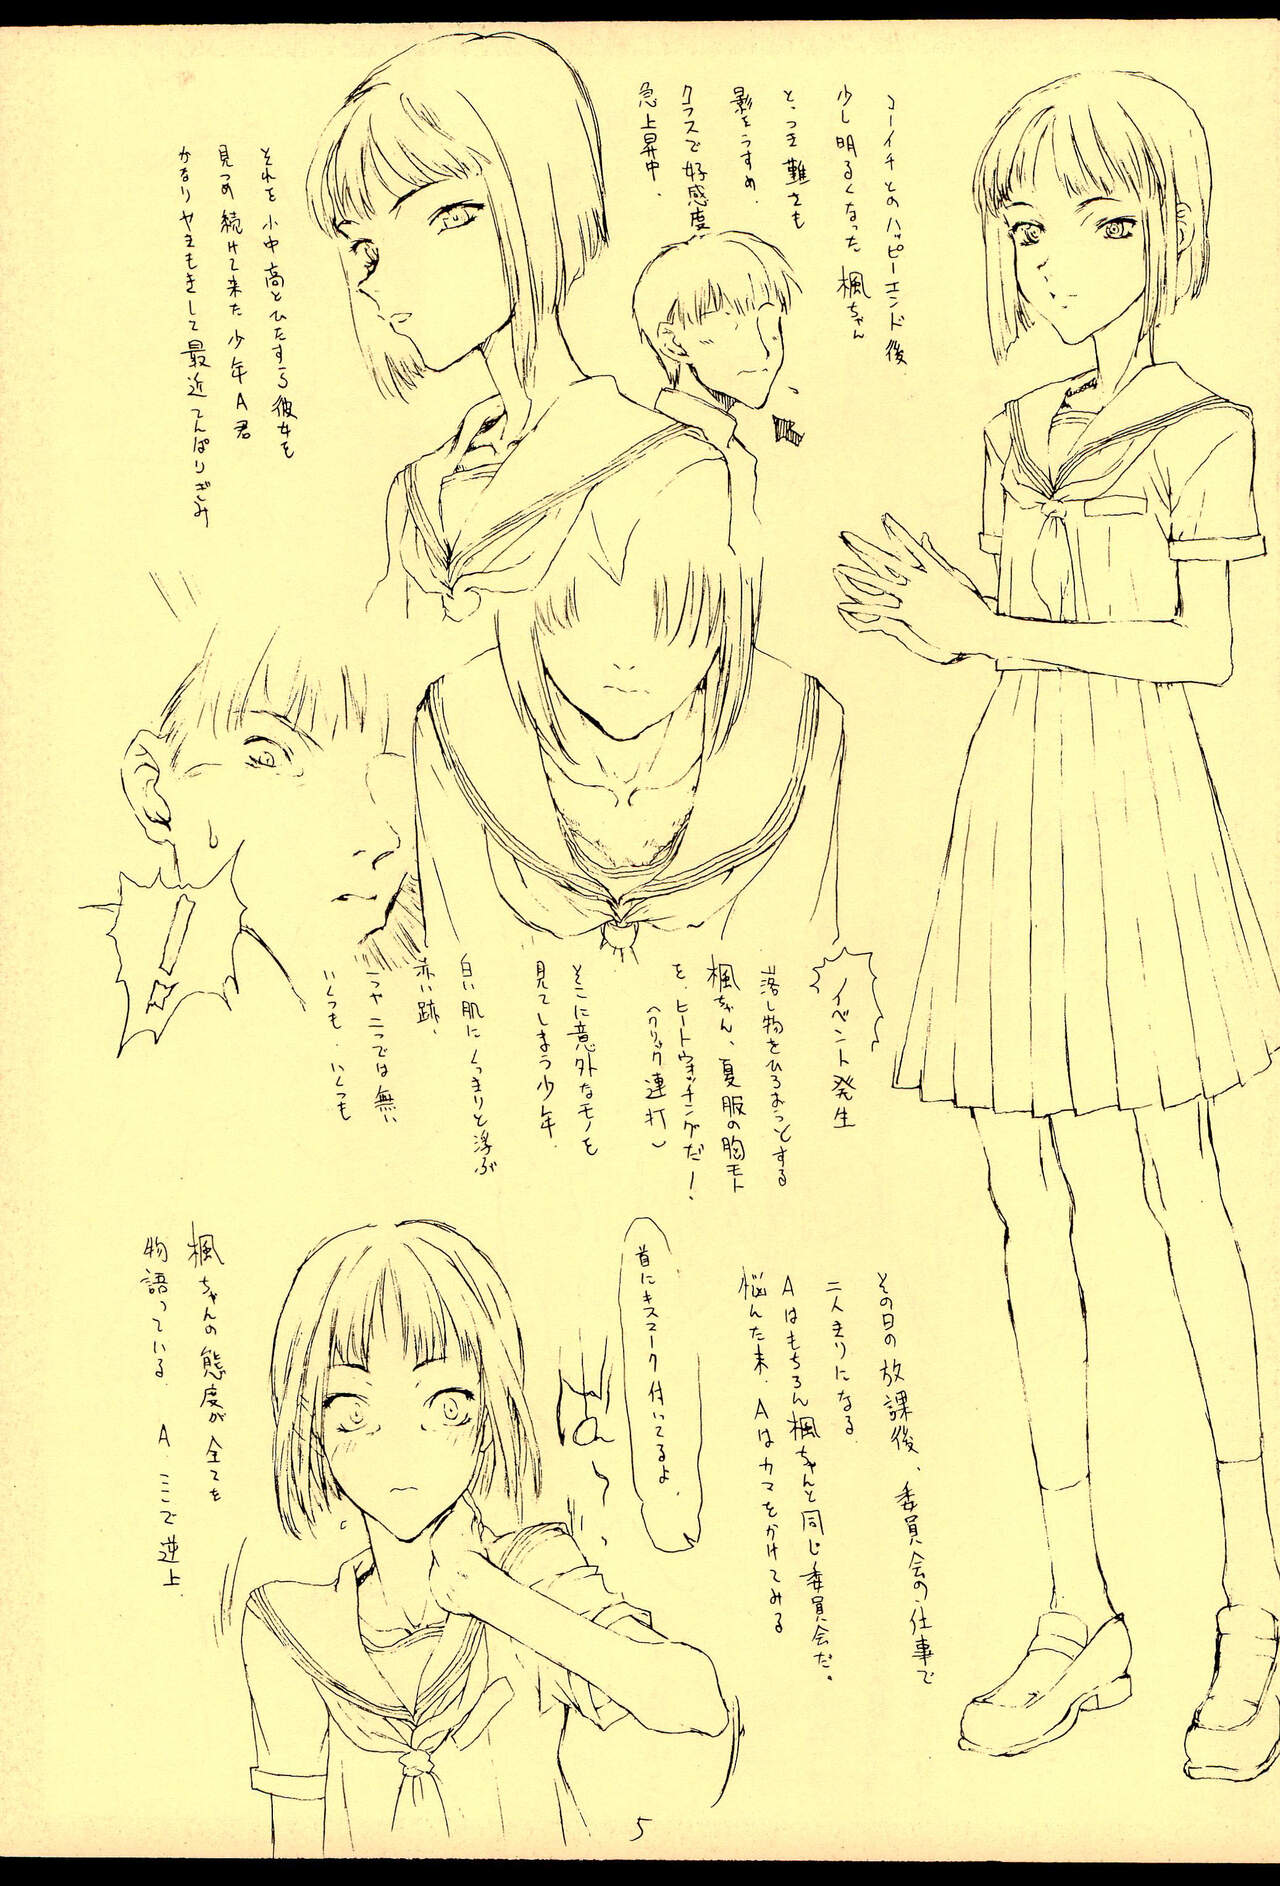 コーイチとのハッピーエンド後
少し明るくなった楓ちゃん
とっつき難さも
影をうすめ.
クラスで好感度
急上昇中.
それを小中高とひたすら彼女を
見つめ続けて来た少年A君
かなりヤキモキして最近てんぱりぎみ
イベント発生
落し物をひろおうとする
楓ちゃん、夏服の胸モト
を、ヒートウォッチングだ!
(クリック連打)
そこに意外なモノを
見てしまう少年.
白い肌にくっきりと浮ぶ
赤い跡.
一つや二つでは無い
いくつも.いくつも
その日の放課後、委員会の仕事で
二人きりになる
Aはもちろん楓ちゃんと同じ委員会だ。
悩んだ末.Aはカマをかけてみる
首にキスマーク付いてるよ.
楓ちゃんの態度が全てを
物語っている. A.ここで逆上.
5